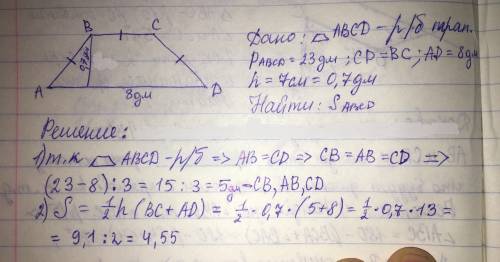 B C
0,7дм
A 8дм D
Дано: ABCD-р/б трап.
PABCD=23дм; CD=BC; AD=8дм
h=7см=0,7дм
Найти: SABCD
Решение:
1) т.к ABCD-р/б => AB=CD => CB=AB=CD =>
(23-8):3=15:3=5дм-CB,AB,CD
2) S=1/2h(BC+AD)=1/2·0,7·(5+8)=1/2·0,7·13=
=9,1:2=4,55